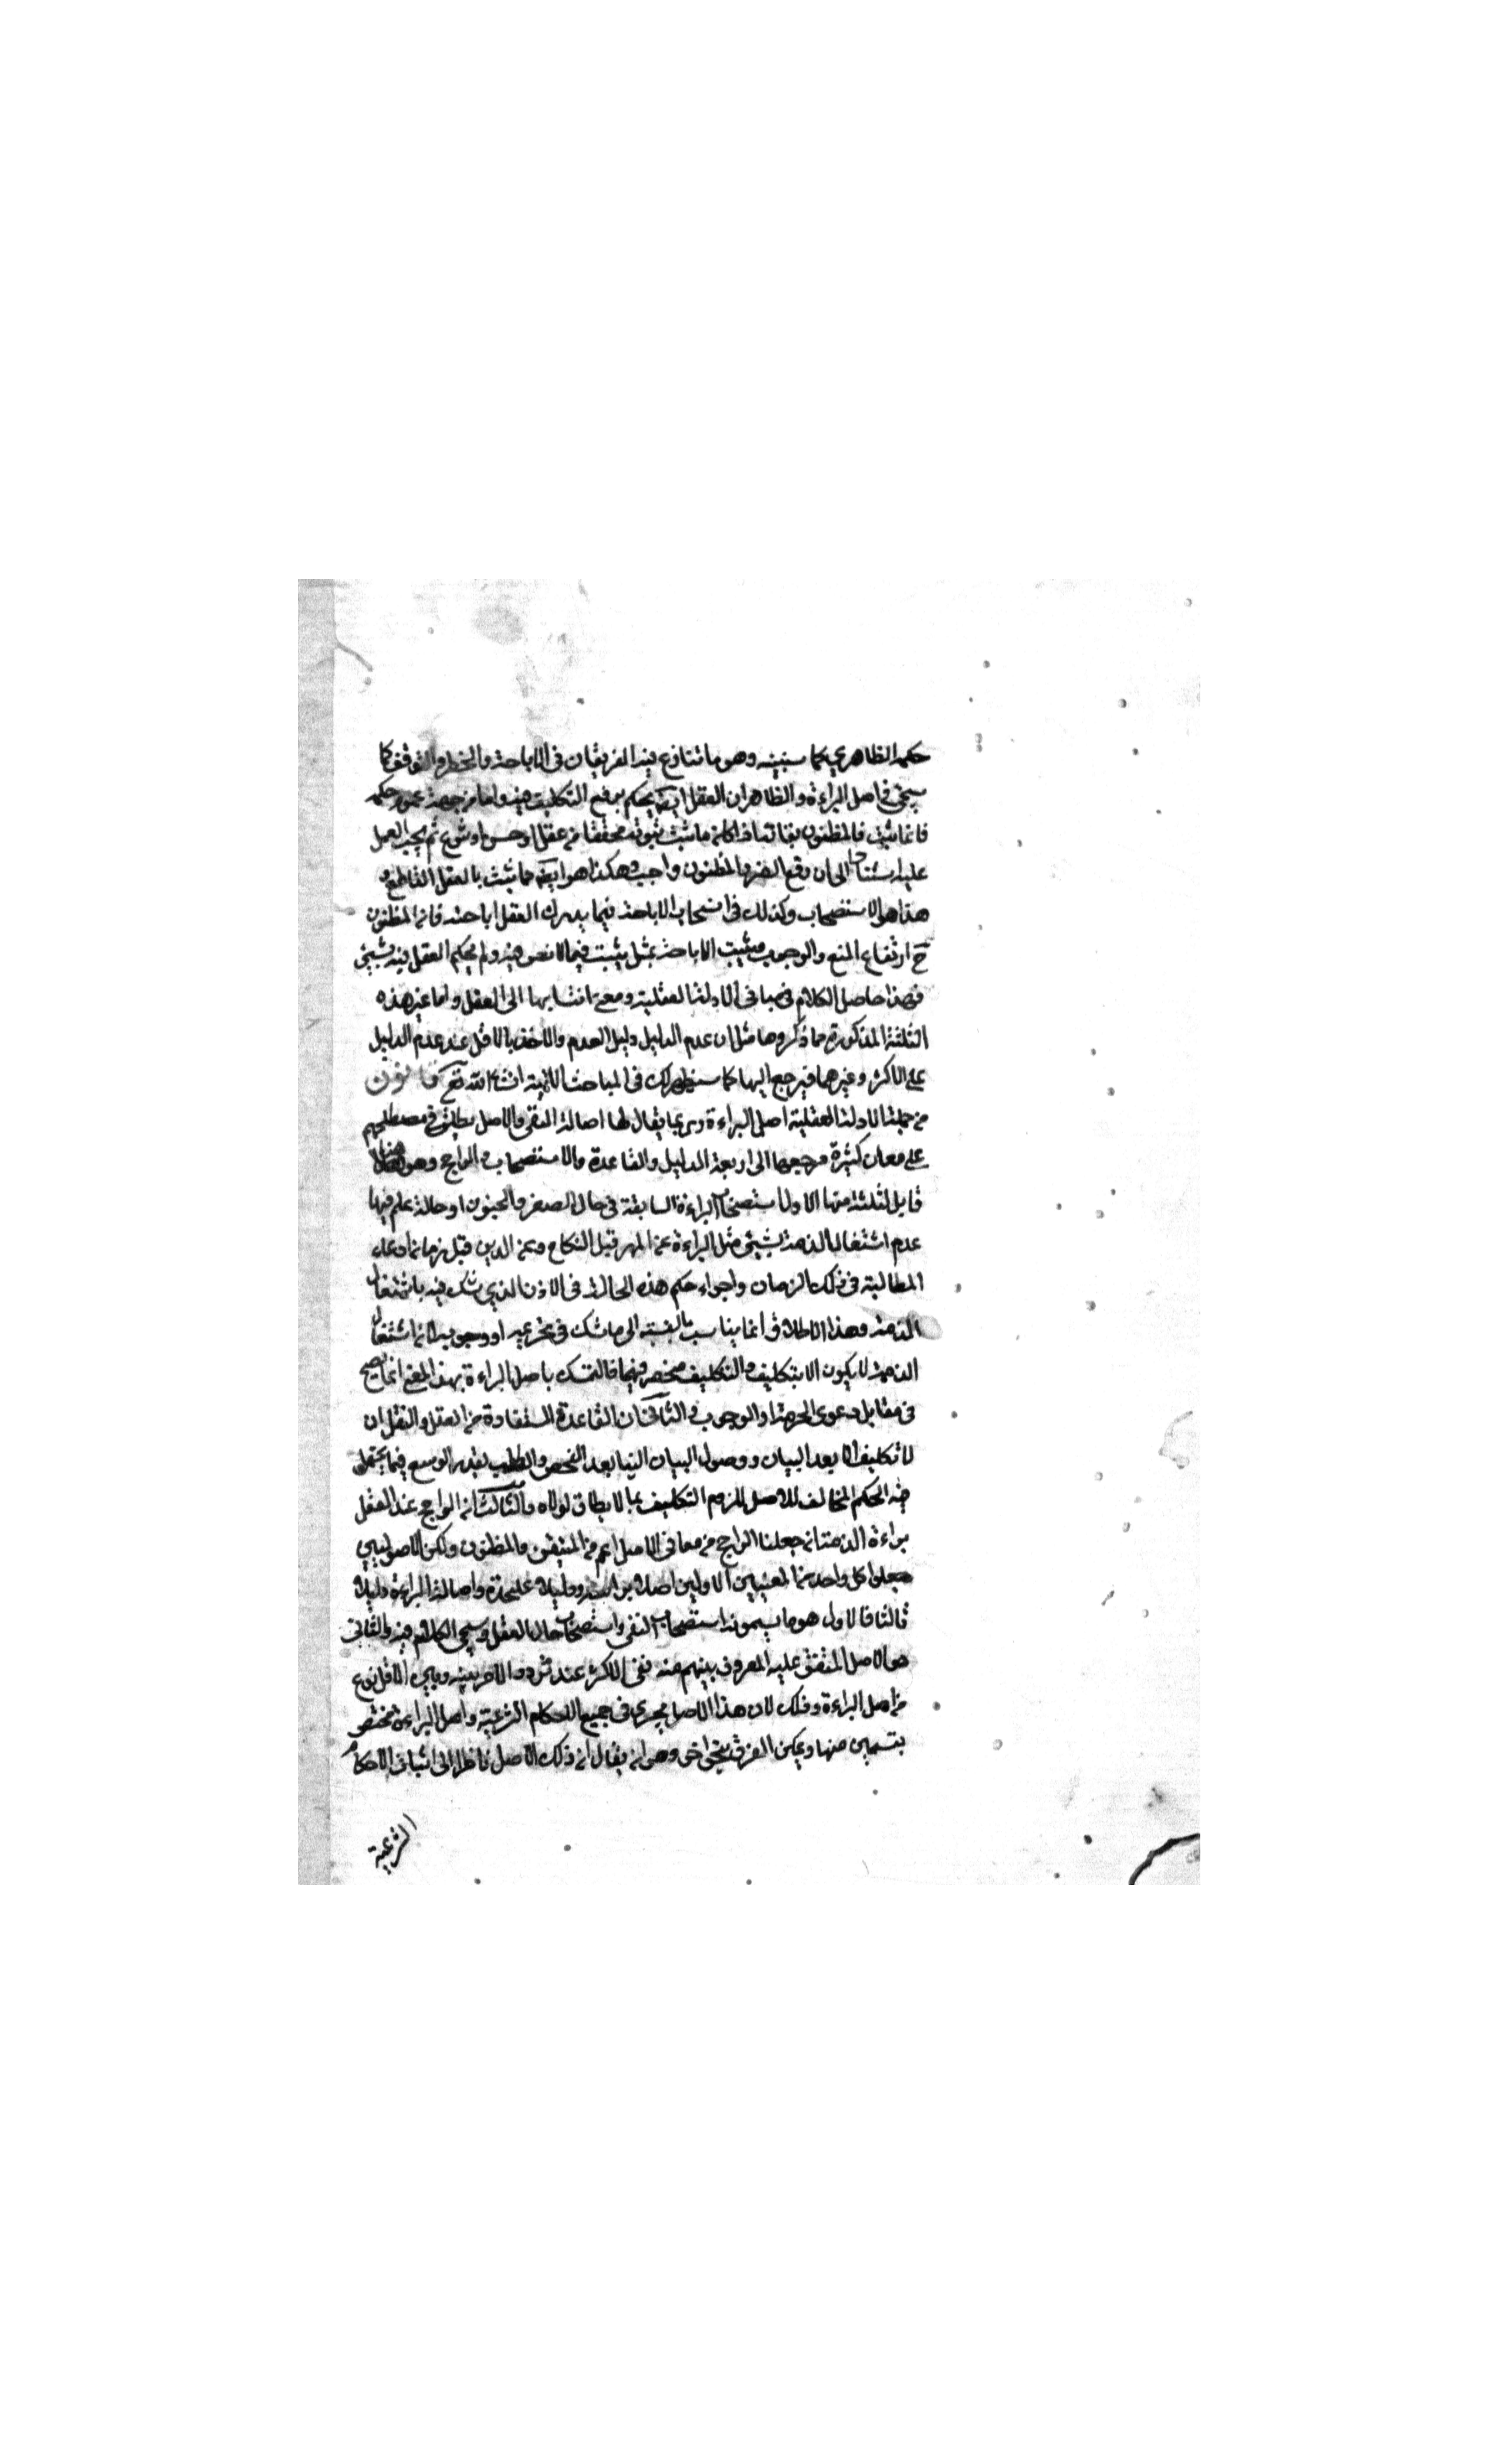 حكمه الظاهري كما سنبينه وهو ما تنازع فيه الفريقان في الاباحة والحظر والتوقف كما
سيجئ في اصل البراءة والظاهر ان العقل ايضا يحكم برفع التكليف فيه واما من جهة عموم حكمه
فانما يثبت فالمظنون بقائه اذ كلما ثبت ثبوته محققا من عقل او حس او شرع ثم يجب العمل
عليه استنادا الى ان دفع الضرر المظنون واجب وهكذا هو ايضا مما يثبت بالعقل القاطع و
هذا هو الاستصحاب وكذلك في انسحاب الاباحة فيما يدرك العقل اباحته فانه المظنون
ح ارتفاع المنع والوجوب فيثبت الاباحة بمثل يثبت فيما لا نص فيه ولم يحكم العقل فيه بشيئ
فهذا حاصل الكلام في الادلة العقلية ومعنى انتسابها الى العقل واما غير هذه
الثلثة المذكورة مما ذكروها مثل ان عدم الدليل دليل العدم والاخذ بالاقل عند عدم الدليل
على الاكثر وغيرهما فيرجع اليها كما سيظهر لك في المباحث الاتية انشاء الله تع قانون
من جملة الادلة العقلية اصل البراءة وربما يقال لها اصالة النفي والاصل يطلق في مصطلحهم
على معان كثيرة مرجعها الى اربعة الدليل والقاعدة والاستصحاب والراجح وهو هنا
قابل لثلثة منها الاول استصحاب البراءة السابقة في حال الصغر والجنون او حالة علم فيها
عدم اشتغال الذمة بشيئ مثل البراءة عن المهر قبل النكاح وعن الدين قبل زمان ادعاء
المطالبة في ذلك الزمان واجراء حكم هذه الحالة في الان الذي شك فيه باشتغال
الذمة وهذا الاطلاق انما يناسب بالنسبة الى ما شك في تحريمه او وجوبه لان اشتغال
الذمة لا يكون الا بتكليف والتكليف منحصر فيهما فالتمسك باصل البراءة بهذا المعنى انما يصح
في مقابل دعوى الحرمة او الوجوب والثاني ان القاعدة المستفادة من العقل والنقل ان
لا تكليف الا بعد البيان ووصول البيان الينا بعد الفحص والطلب بقدر الوسع فيما يحتمل
فيه الحكم المخالف للاصل للزوم التكليف بما لا يطاق لولاه والثالث ان الراجح عند العقل
براءة الذمة ان جعلنا الراجح من معاني الاصل اعم من المتيقن والمظنون ولكن الاصوليين
جعلوا كل واحد من المعنيين الاولين اصلا براسه ودليلا عليحدة واصالة البراءة دليلا
ثالثا فالاول هو ما يسمونه استصحاب النفي واستصحاب حال العقل وسيجئ الكلام فيه والثاني
هو الاصل المتفق عليه المعروف بينهم منه نفي الاكثر عند تردد الامر بينه وبين الاقل نوع
من اصل البراءة وذلك لان هذا الاصل يجري في جميع الاحكام الشرعية واصل البراءة مختص
بقسمين منها ويمكن الفرق بنحو اخر وهو ان يقال ان ذلك الاصل ناظر الى اثبات الاحكام
الشرعية